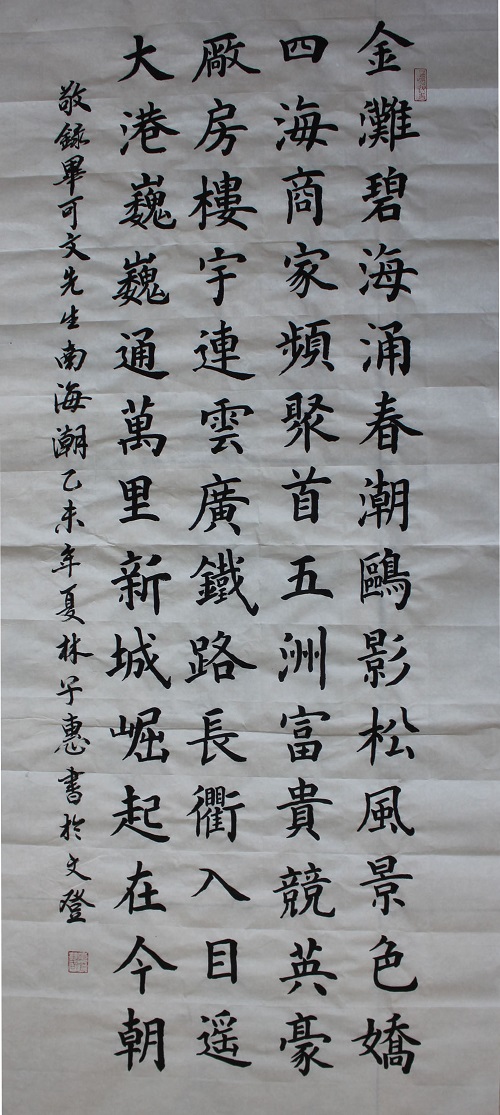 金灘碧海涌春潮鷗影松風景色嬌
四海商家頻聚首五洲富貴競英豪
廠房樓宇連雲廣鐵路長衢入目遥
大港巍巍通萬里新城崛起在今朝
敬録畢可文先生南海潮乙未年夏林子惠書於文登